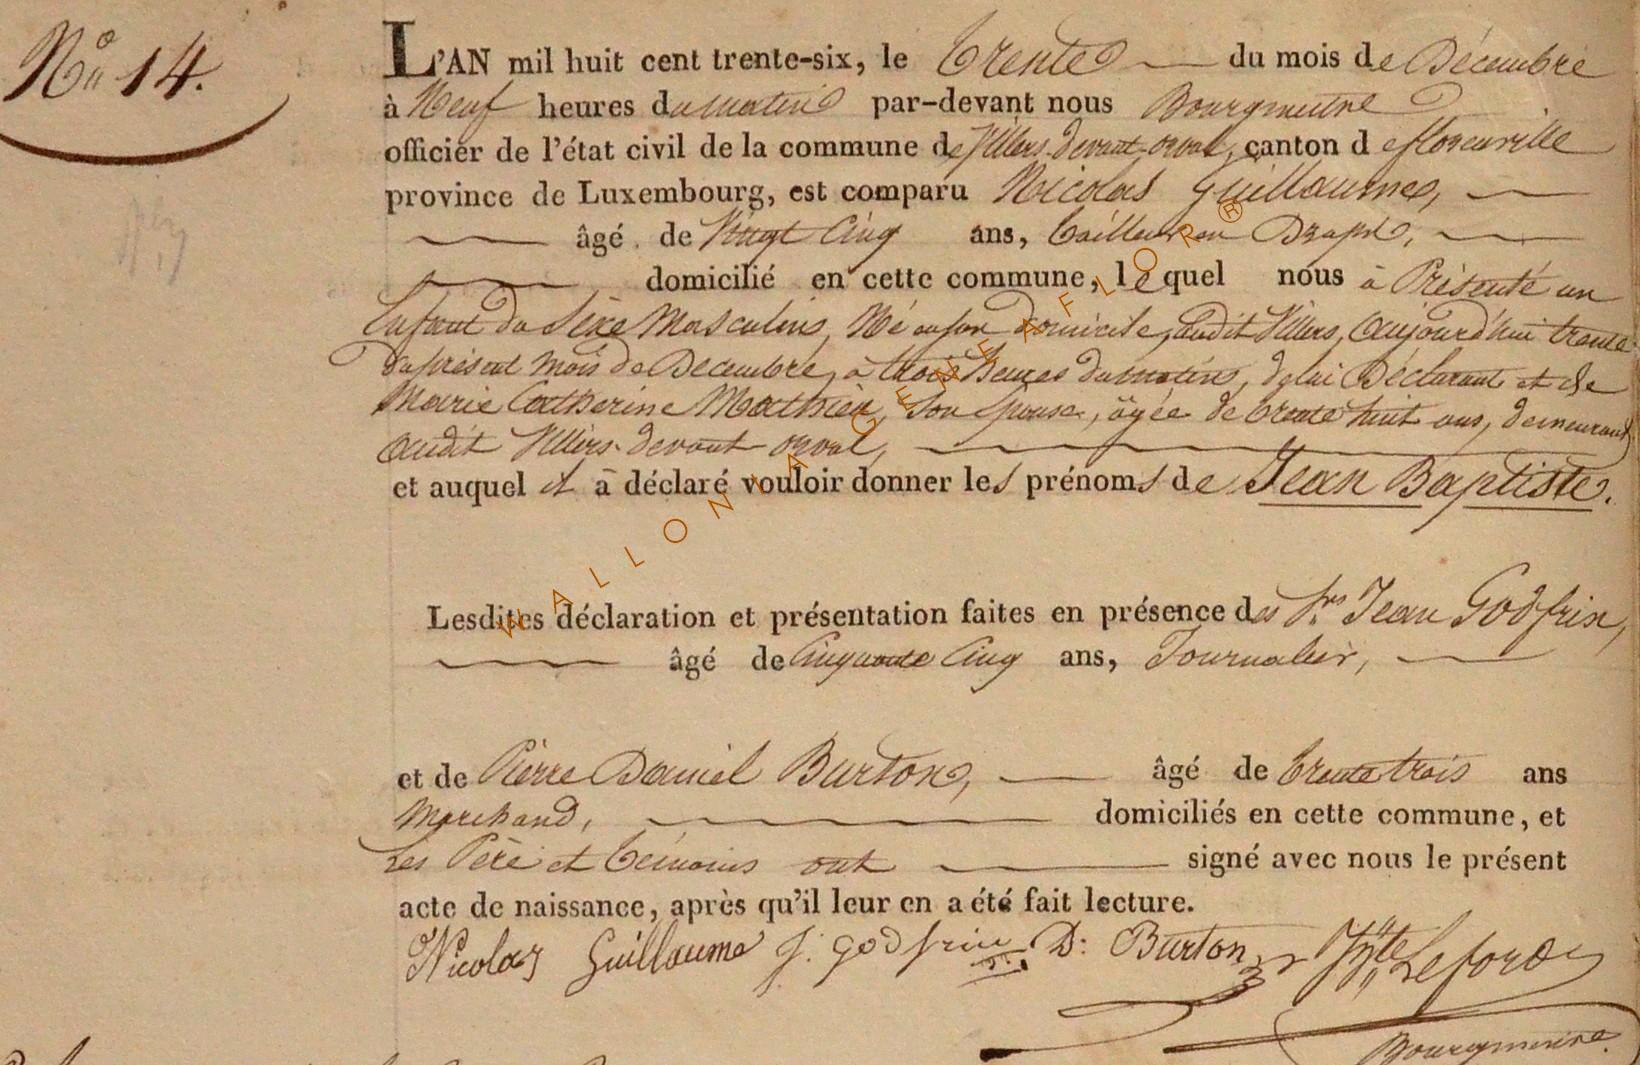 No 14.
L'AN mil huit cent trente-six, le trente du mois de Décembre
à Neuf heures du matin par-devant nous Bourgmestre
officier de l'état civil de la commune de Villers-devant-orval, canton de florenville
province de Luxembourg, est comparu Nicolas Guillaume,
âgé de Vingt Cinq ans, tailleur en Drap,
domicilié en cette commune, lequel nous à Présenté un
Enfant du Sèxe Masculin, Né en son domicile, audit Villers, aujourd'hui trente
du présent mois de Décembre, à trois heures du matin, de lui Déclarant et de
Marie Catherine Mathieu, Son Epouse, âgée de trente huit ans, demeurant
audit Villers-devant-orval,
et auquel il à déclaré vouloir donner les prénoms de Jean Baptiste.
Lesdites déclaration et présentation faites en présence des Srs Jean Godfrin,
âgé de Cinquante Cinq ans, Journalier,
et de Pierre Daniel Burton, âgé de trente trois ans
Marchand, domiciliés en cette commune, et
Les Père et témoins ont signé avec nous le présent
acte de naissance, après qu'il leur en a été fait lecture.
Nicolas Guillaume J. godfrin D: Burton Hyte Leford
Bourgmestre.
WALLONIA GENEAFLOR ®